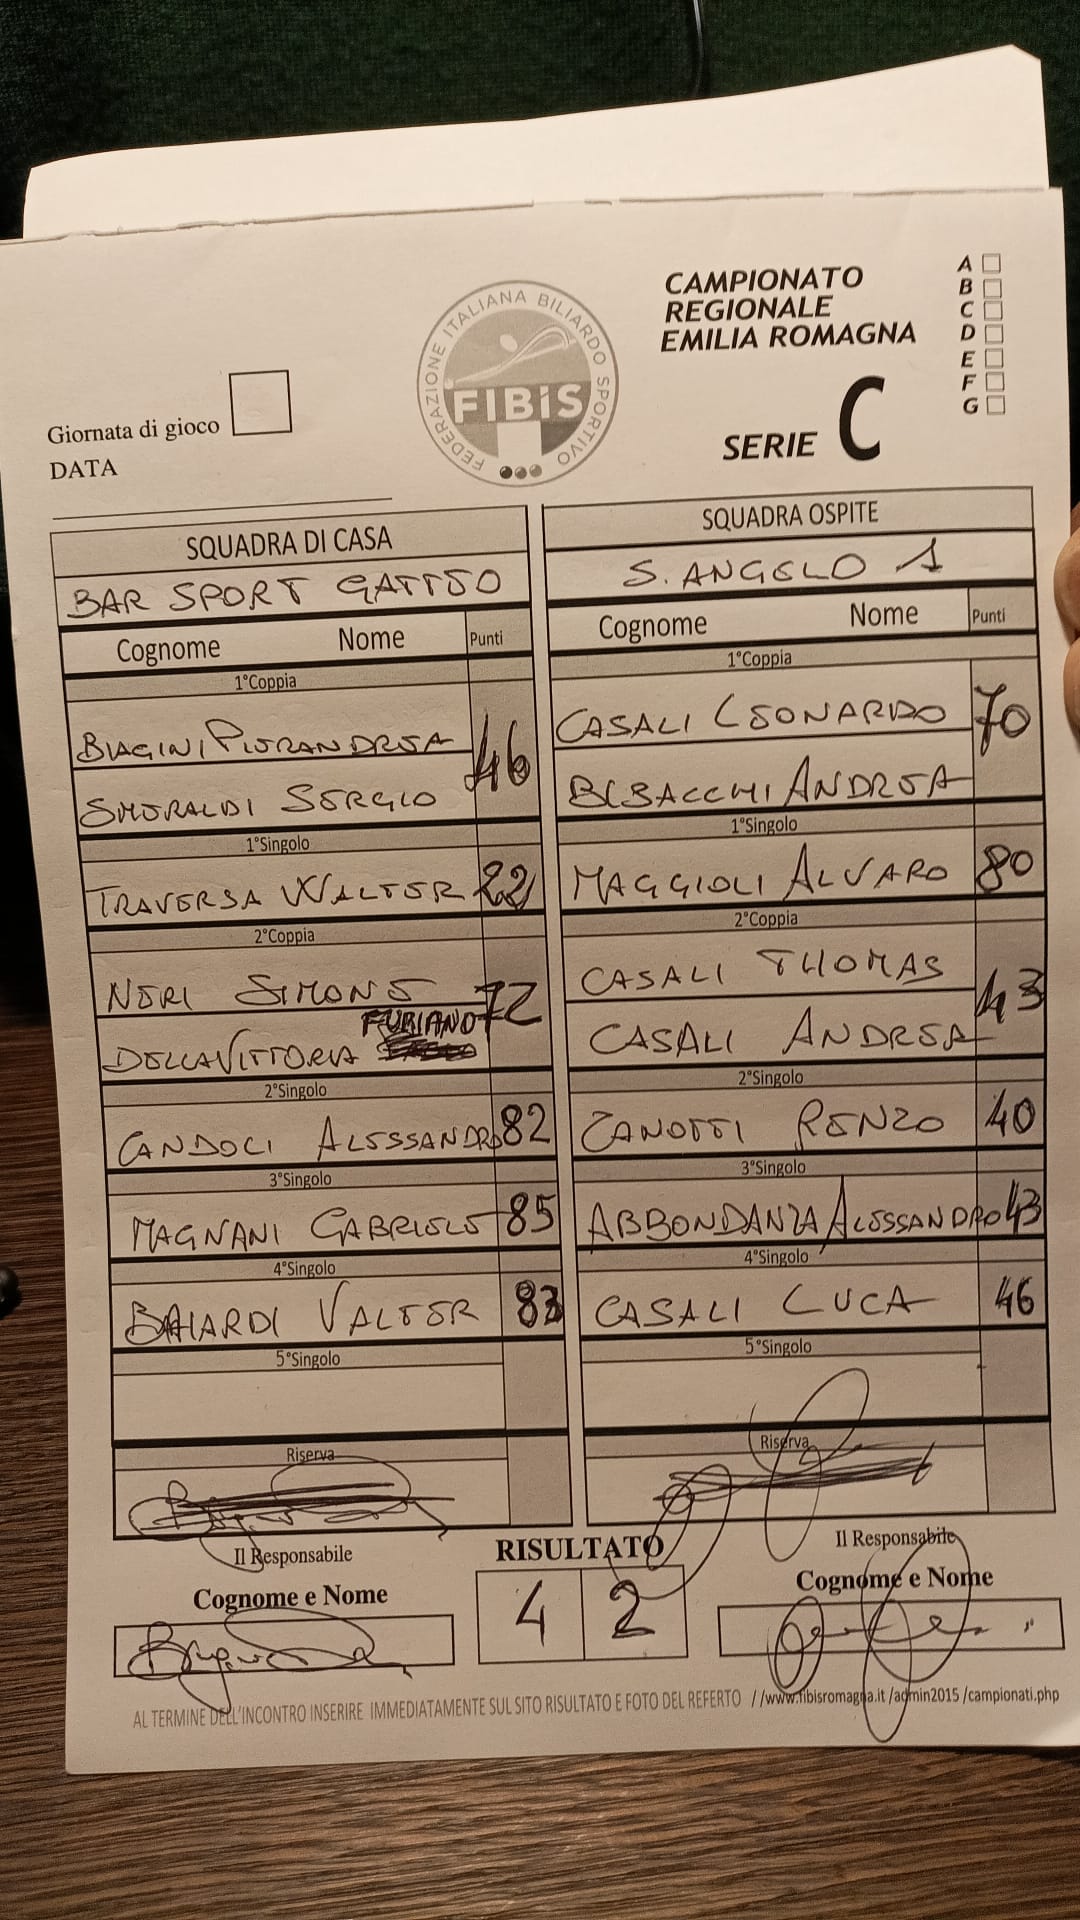 CAMPIONATO
REGIONALE
EMILIA ROMAGNA
SERIE C
A
B
C
D
E
F
G
FEDERAZIONE ITALIANA BILIARDO SPORTIVO
FIBiS
Giornata di gioco
DATA
SQUADRA DI CASA
BAR SPORT GATTEO
Cognome Nome Punti
1°Coppia
BIAGINI PIERANDREA 46
SMERALDI SERGIO
1°Singolo
TRAVERSA WALTER 22
2°Coppia
NERI SIMONE 72
FURIANO
DELLAVITTORIA
2°Singolo
CANDOLI ALESSANDRO 82
3°Singolo
MAGNANI GABRIELE 85
4°Singolo
BAIARDI VALTER 83
5°Singolo
Riserva
Il Responsabile
Cognome e Nome
SQUADRA OSPITE
S. ANGELO 1
Cognome Nome Punti
1°Coppia
CASALI LEONARDO 70
BISACCHI ANDREA
1°Singolo
MAGGIOLI ALVARO 80
2°Coppia
CASALI THOMAS 43
CASALI ANDREA
2°Singolo
ZANOTTI RENZO 40
3°Singolo
ABBONDANZA ALESSANDRO 43
4°Singolo
CASALI LUCA 46
5°Singolo
Riserva
Il Responsabile
Cognome e Nome
RISULTATO
4 2
AL TERMINE DELL'INCONTRO INSERIRE IMMEDIATAMENTE SUL SITO RISULTATO E FOTO DEL REFERTO //www.fibisromagna.it /admin2015 /campionati.php